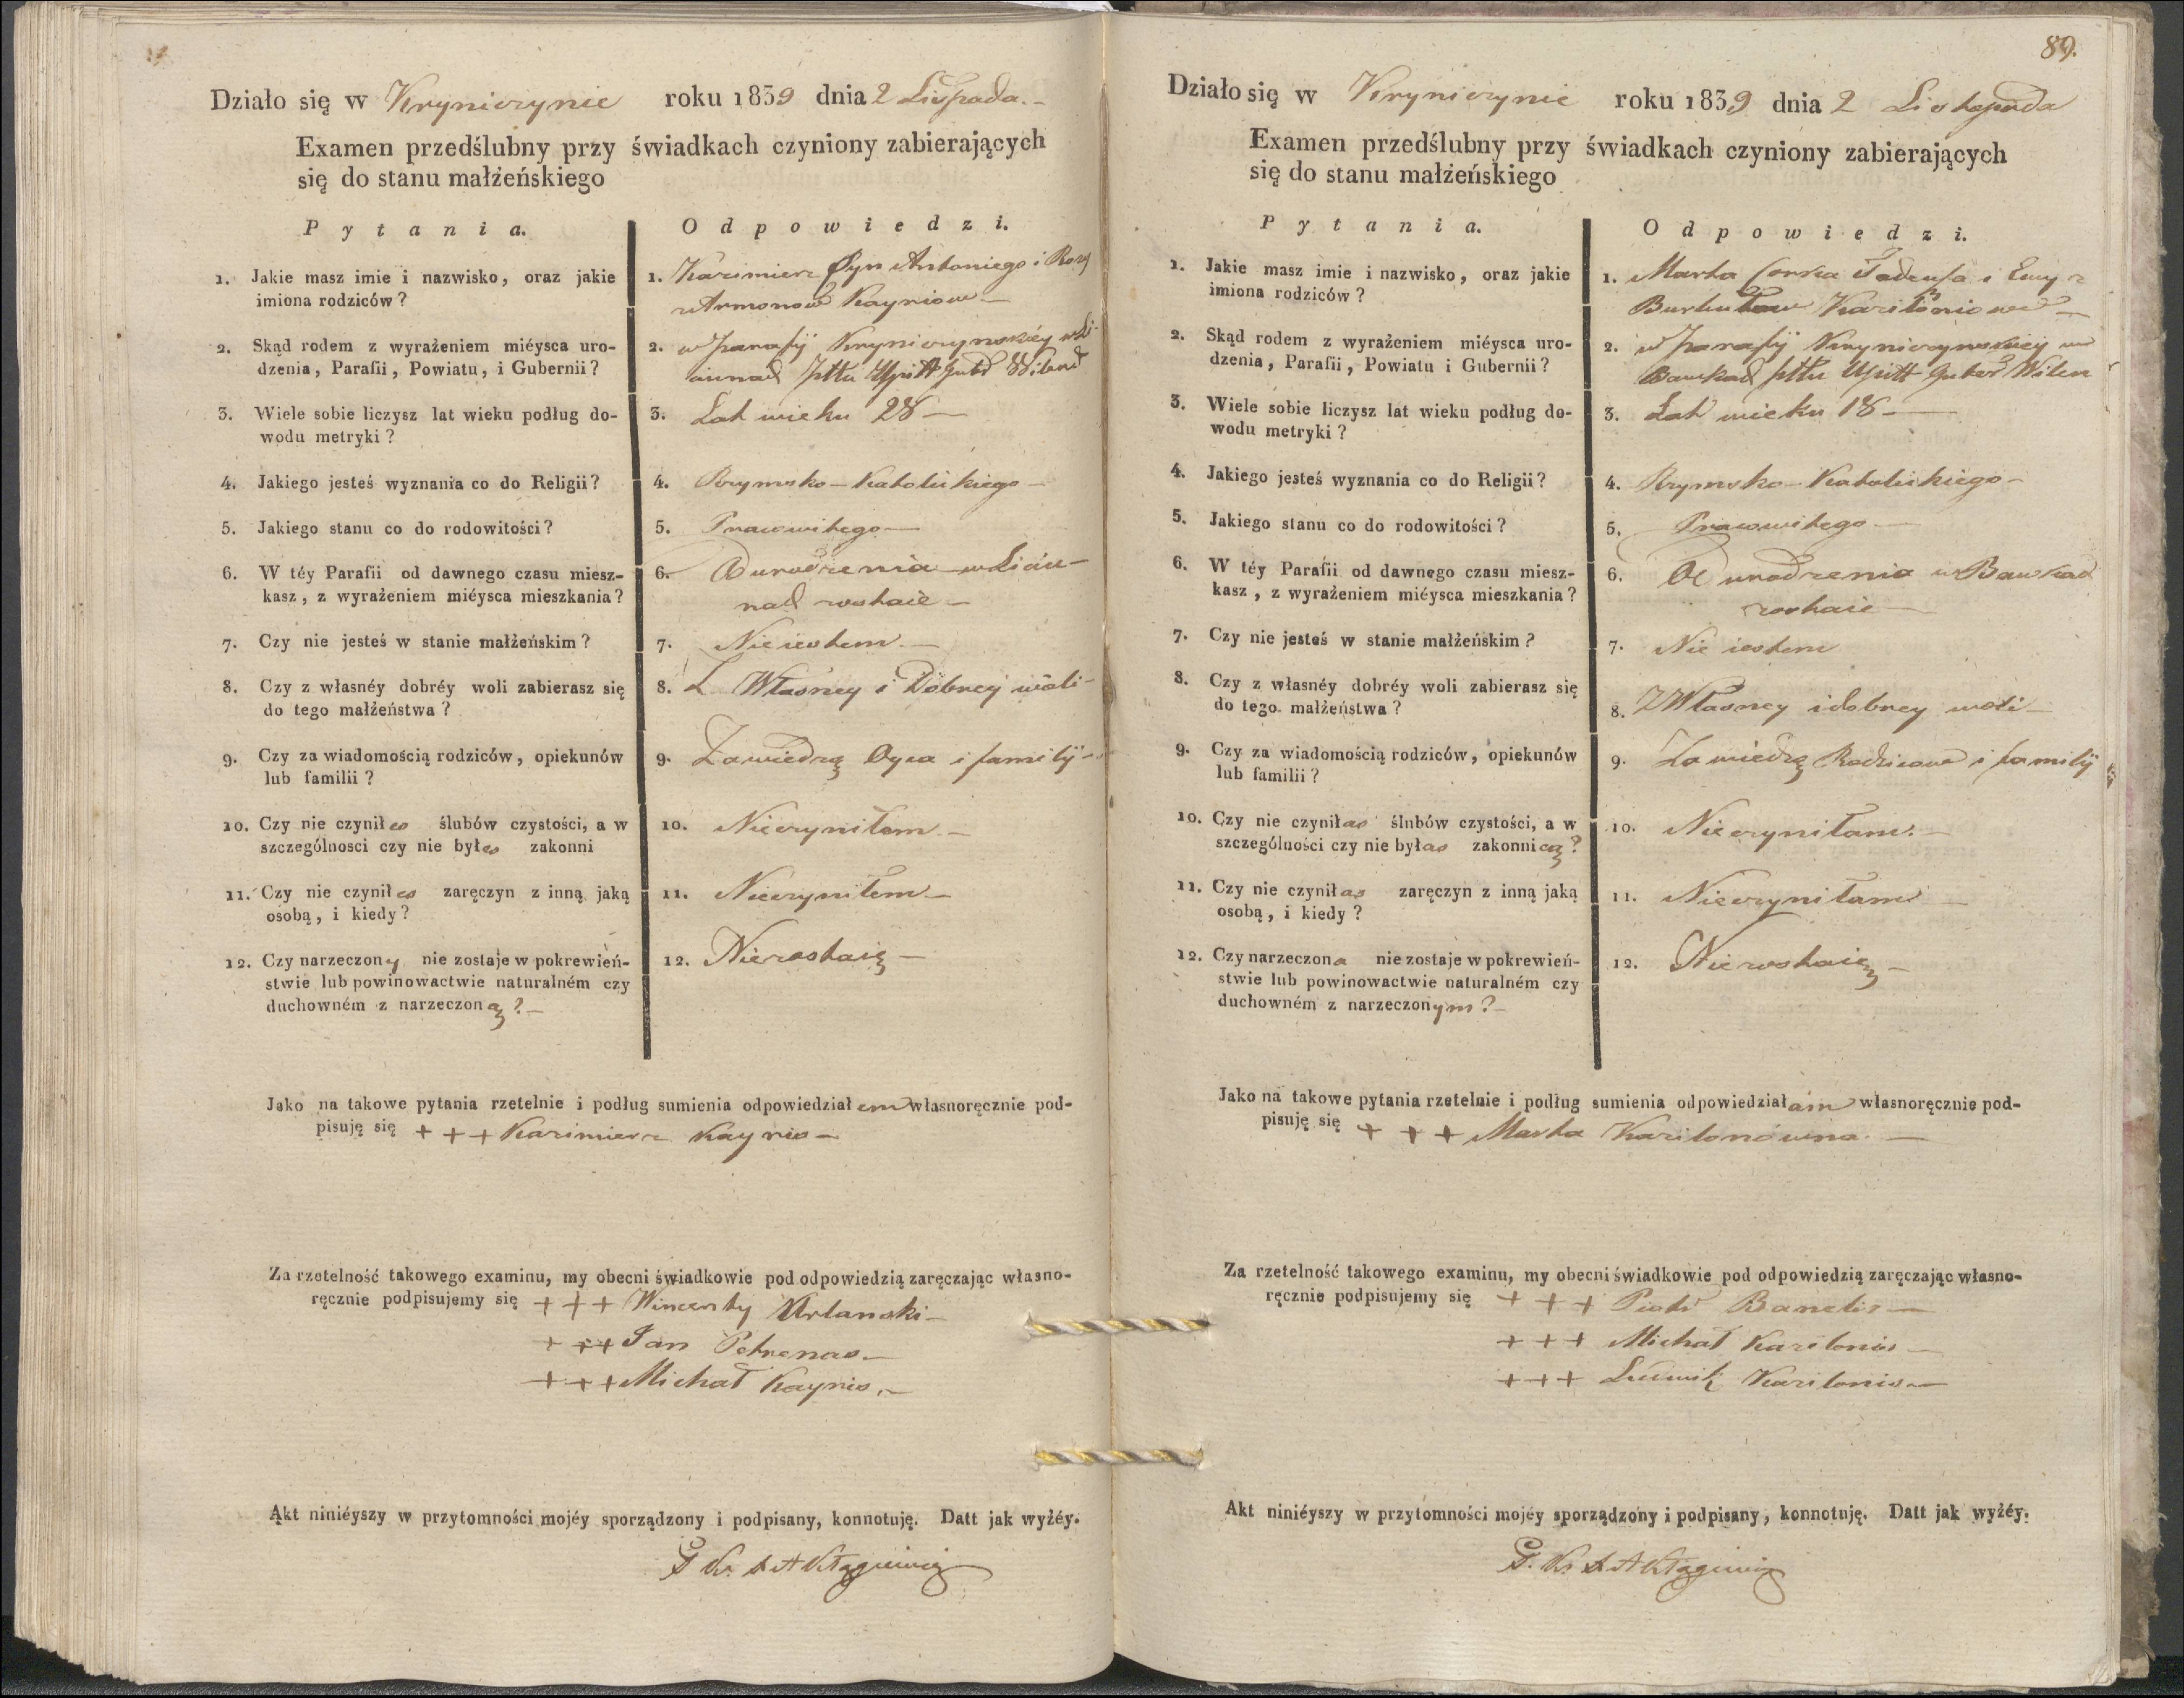 Działo się w Kryniczynie roku 1839 dnia 2 Listopada.
Examen przedślubny przy świadkach czyniony zabierających
się do stanu małżeńskiego
Pytania. Odpowiedzi.
1. Jakie masz imie i nazwisko, oraz jakie
imiona rodziców?
1. Kazimierz Syn Antoniego i Rozy
z Armonow Kayniow
2. Skąd rodem z wyrażeniem miéysca uro-
dzenia, Parafii, Powiatu, i Gubernii?
2. w parafij Kryniczynskiéy
pttu Upitt Gub Wilens
3. Wiele sobie liczysz lat wieku podług do-
wodu metryki?
3. Lat wieku 28
4. Jakiego jesteś wyznania co do Religii?
4. Rzymsko-Katolickiego
5. Jakiego stanu co do rodowitości?
5. Pracowitego
6. W téy Parafii od dawnego czasu miesz-
kasz, z wyrażeniem miéysca mieszkania?
6. Od urodzenia w
zostaie
7. Czy nie jesteś w stanie małżeńskim?
7. Nie iestem
8. Czy z własnéy dobréy woli zabierasz się
do tego małżeństwa?
8. Z Własney i Dobrey woli
9. Czy za wiadomością rodziców, opiekunów
lub familii?
9. Za wiedzą Oyca i familij
10. Czy nie czyniłes ślubów czystości, a w
szczególnosci czy nie byłes zakonni
10. Nieczyniłem
11. Czy nie czyniłes zaręczyn z inną jaką
osobą, i kiedy?
11. Nieczyniłem
12. Czy narzeczony nie zostaje w pokrewień-
stwie lub powinowactwie naturalném czy
duchowném z narzeczoną?
12. Niezostaię
Jako na takowe pytania rzetelnie i podług sumienia odpowiedziałem własnoręcznie pod-
pisuję się +++ Kazimierz Kaynis
Za rzetelność takowego examinu, my obecni świadkowie pod odpowiedzią zaręczając własno-
ręcznie podpisujemy się +++ Wincenty Urlanski
+++ Jan Petrenas
+++ Michał Kaynis
Akt niniéyszy w przytomności mojéy sporządzony i podpisany, konnotuję. Datt jak wyżéy.
89.
Działo się w Kryniczynie roku 1839 dnia 2 Listopada
Examen przedślubny przy świadkach czyniony zabierających
się do stanu małżeńskiego
Pytania. Odpowiedzi.
1. Jakie masz imie i nazwisko, oraz jakie
imiona rodziców?
1. Marta Corka Tadeusa i Ewy z
Burbutow Kariloniow
2. Skąd rodem z wyrażeniem miéysca uro-
dzenia, Parafii, Powiatu i Gubernii?
2. w parafij Kryniczynskiey we
Bawkad pttu Upitt Guber Wilen
3. Wiele sobie liczysz lat wieku podług do-
wodu metryki?
3. Lat wieku 18
4. Jakiego jesteś wyznania co do Religii?
4. Rzymsko-Katolickiego
5. Jakiego stanu co do rodowitości?
5. Pracowitego
6. W téy Parafii od dawnego czasu miesz-
kasz, z wyrażeniem miéysca mieszkania?
6. Od urodzenia w Bawkad
zostaie
7. Czy nie jesteś w stanie małżeńskim?
7. Nie iestem
8. Czy z własnéy dobréy woli zabierasz się
do tego małżeństwa?
8. Z Własney i dobrey woli
9. Czy za wiadomością rodziców, opiekunów
lub familii?
9. Za wiedzą Rodzicow i familij
10. Czy nie czyniłas ślubów czystości, a w
szczególności czy nie byłas zakonnicą?
10. Nieczyniłam
11. Czy nie czyniłas zaręczyn z inną jaką
osobą, i kiedy?
11. Nieczyniłam
12. Czy narzeczona nie zostaje w pokrewień-
stwie lub powinowactwie naturalném czy
duchowném z narzeczonym?
12. Niezostaię
Jako na takowe pytania rzetelnie i podług sumienia odpowiedziałam własnoręcznie pod-
pisuję się +++ Marta Karilonowna
Za rzetelność takowego examinu, my obecni świadkowie pod odpowiedzią zaręczając własno-
ręcznie podpisujemy się +++ Piotr Banelis
+++ Michał Karilonis
+++ Ludwik Karilonis
Akt niniéyszy w przytomności mojéy sporządzony i podpisany, konnotuję. Datt jak wyżéy.